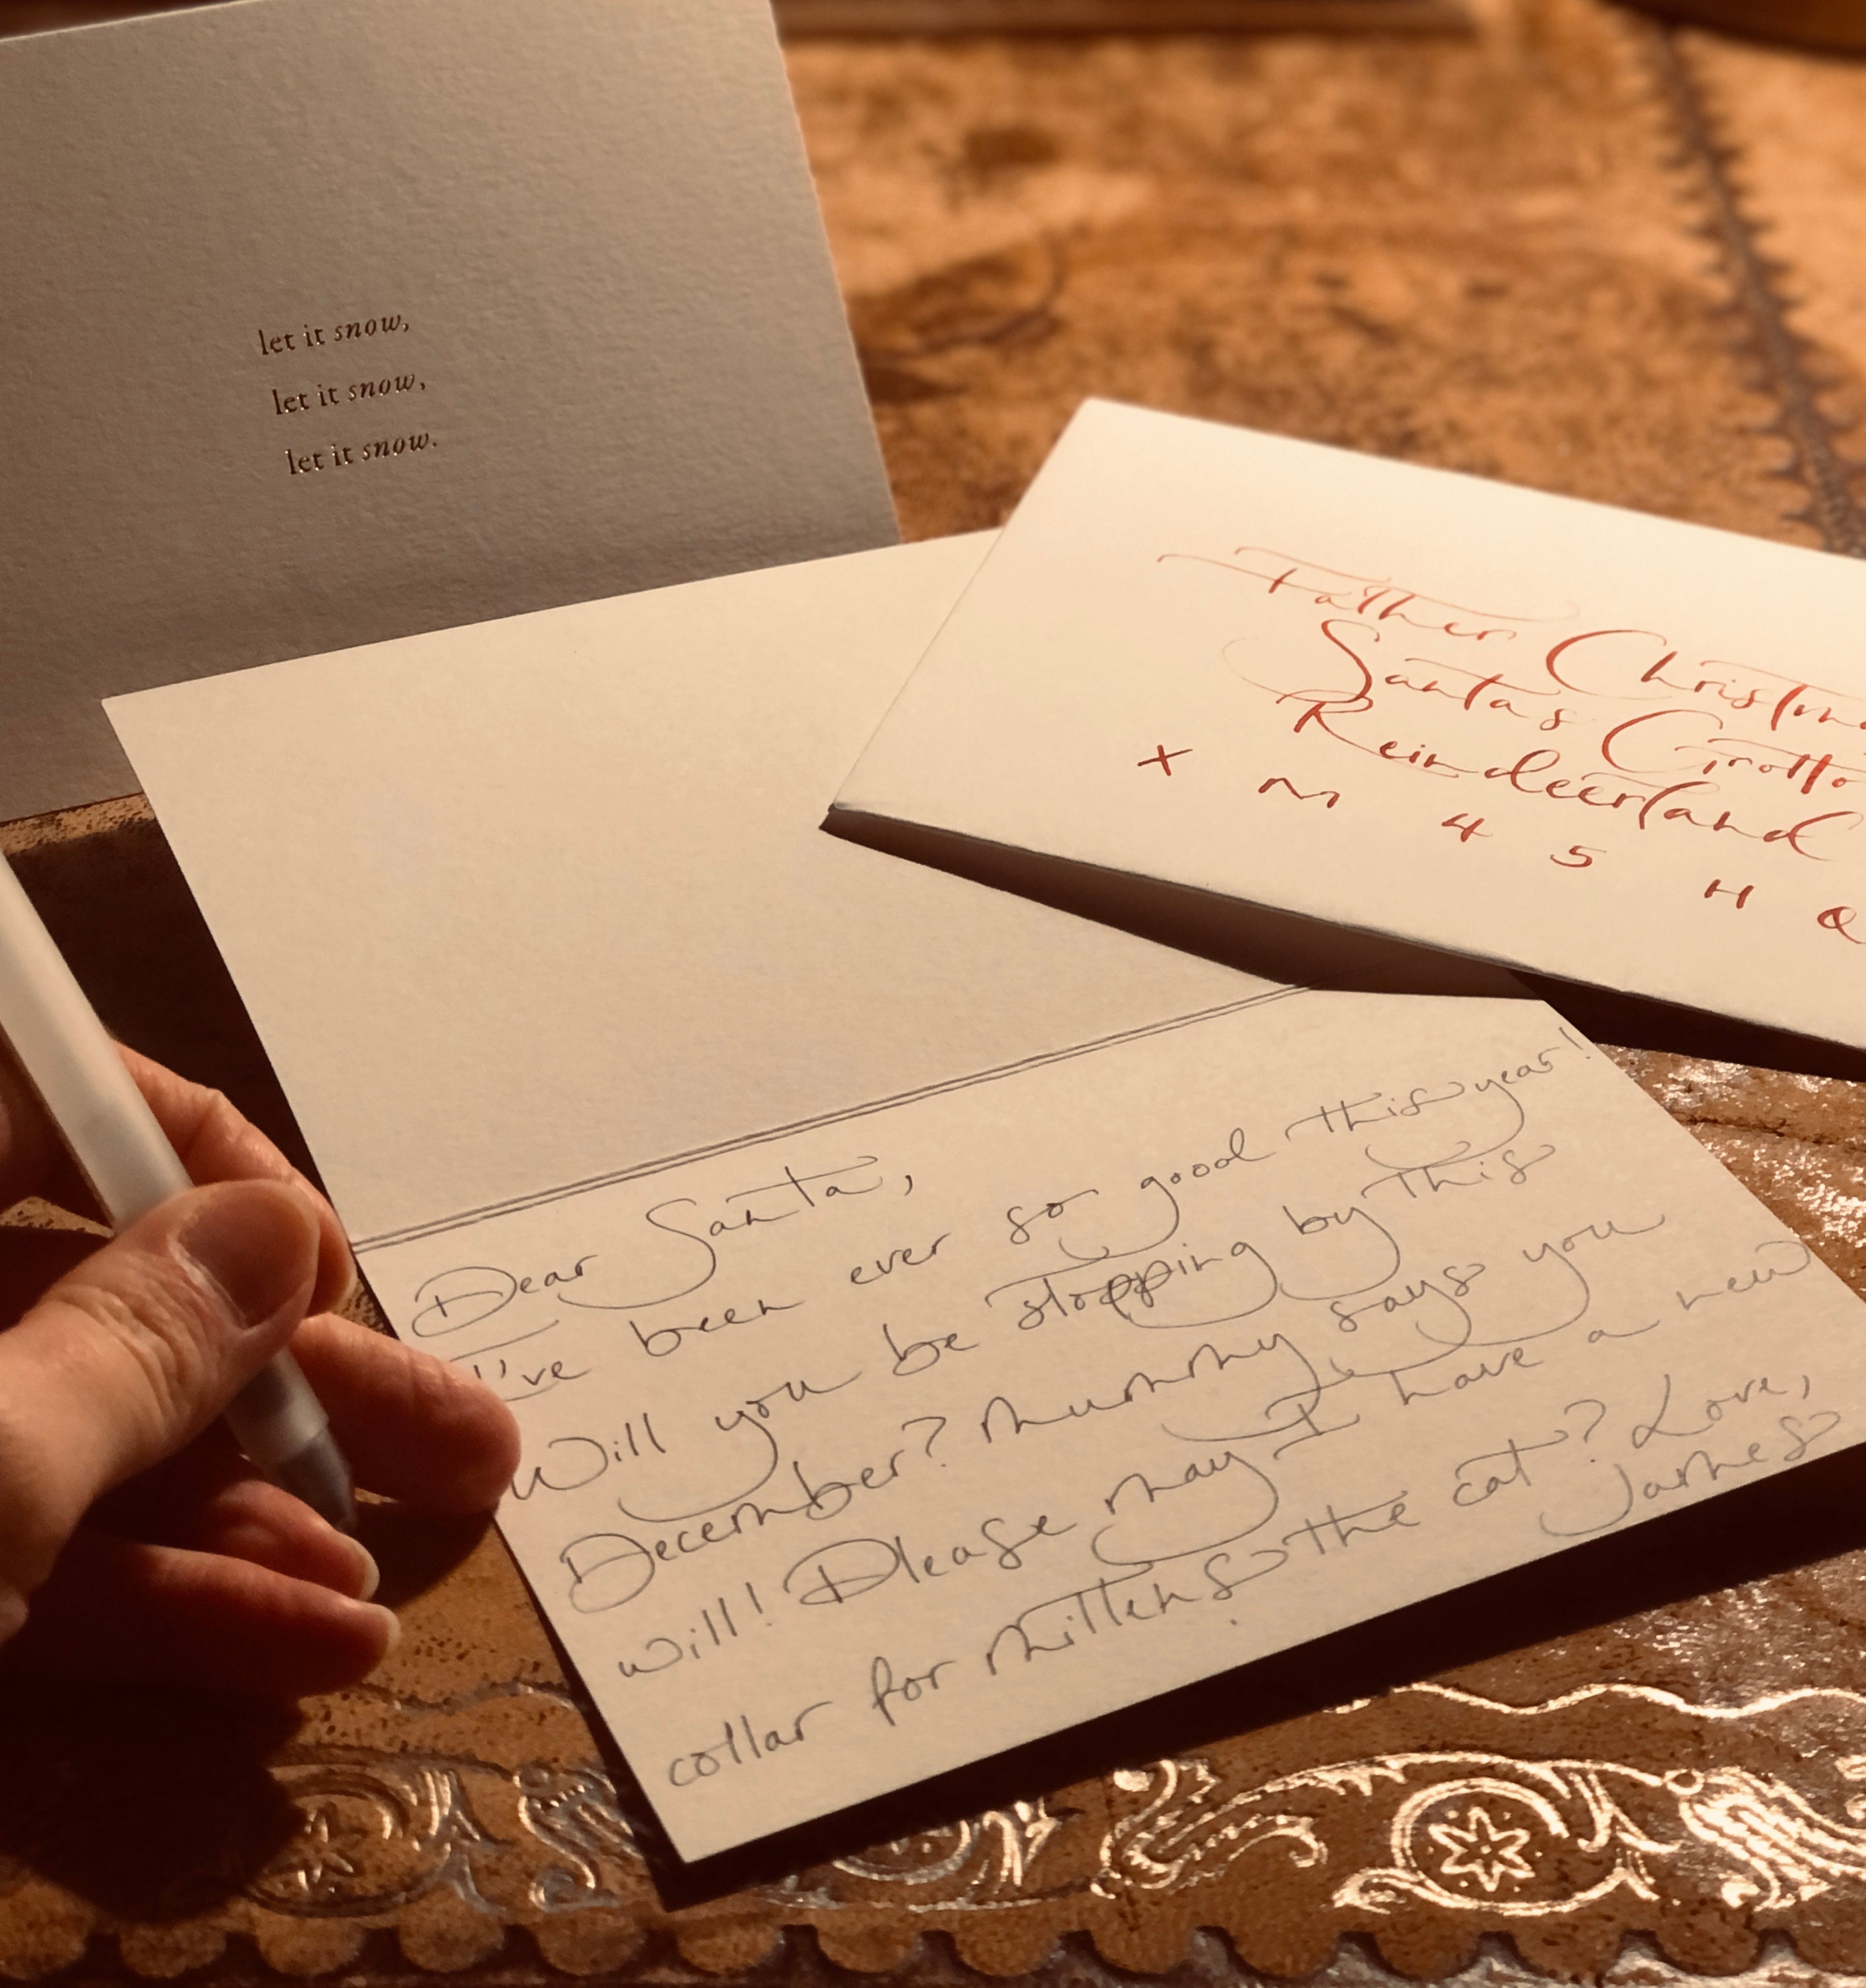 let it snow,
let it snow,
let it snow.
Father Christm
Santas Grotto
Reindeerland
X M 4 5 H Q
Dear Santa,
I've been ever so good this year!
Will you be stopping by this
December? Mummy says you
will! Please may I have a new
collar for Mittens the cat? Love,
James